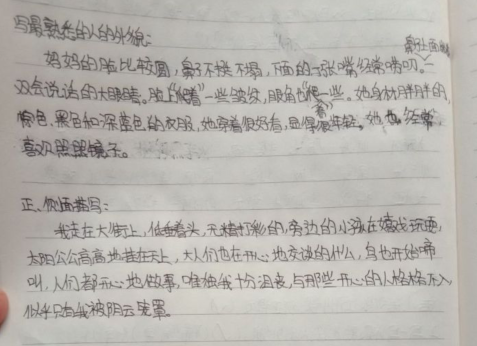 写最熟悉的人的外貌:
鼻子上面是
妈妈的脸比较圆,鼻子不挺不塌,下面的一张嘴经常唠叨。一
双会说话的大眼睛。脸上“爬着”一些皱纹,眼角也“爬一些。她身材胖胖的,
棕色、黑色和深蓝色的衣服,她穿着很好看,显得很年轻。她也经常
喜欢照照镜子。
正、侧面描写:
我走在大街上,低垂着头,无精打彩的,旁边的小孩在嬉戏玩耍,
太阳公公高高地挂在天上,大人们也在开心地交谈的什么,鸟也开始啼
叫,人们都开心地做事,唯独我十分沮丧,与那些开心的人格格不入,
似乎只有我被阴云笼罩。